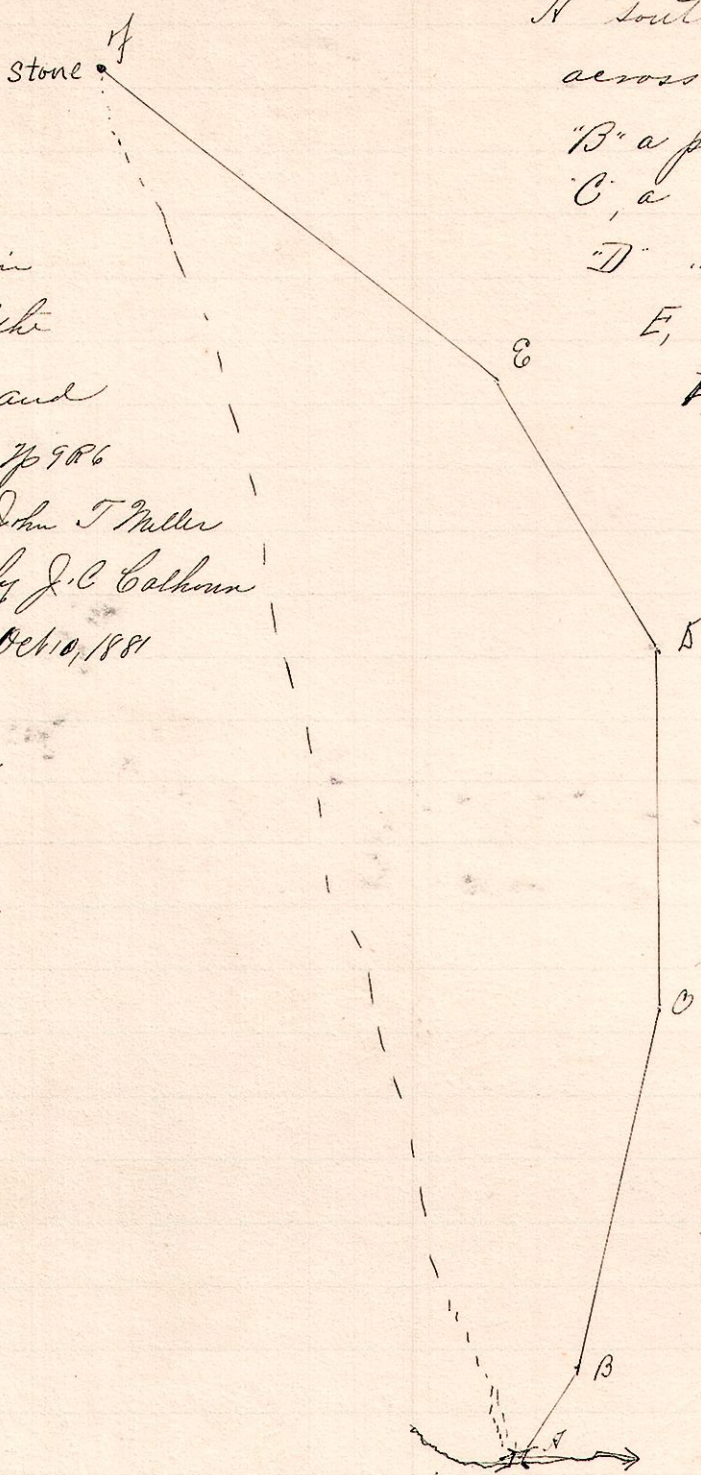 A south
across
"B" a p
"C", a
"D" "
E,
f
Stone
E
in
the
and
Tp 9 R 6
John T Miller
by J. C Calhoun
Oct 10, 1881
D
C
B
A